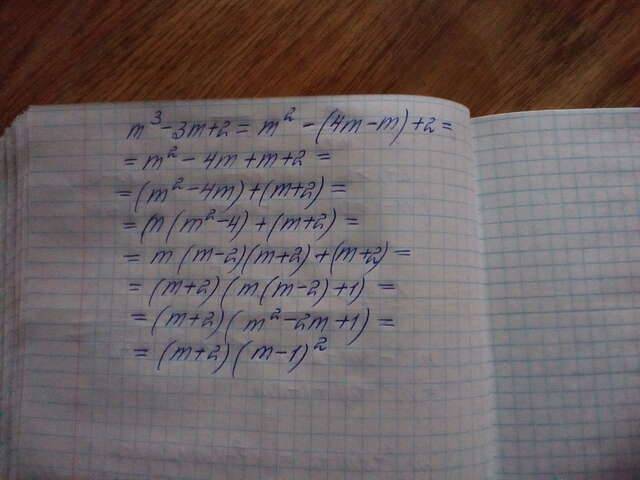 m³-3m+2 = m²-(4m-m)+2=
=m²-4m+m+2=
=(m²-4m)+(m+2)=
=m(m²-4)+(m+2)=
=m(m-2)(m+2)+(m+2)=
=(m+2)(m(m-2)+1)=
=(m+2)(m²-2m+1)=
=(m+2)(m-1)²